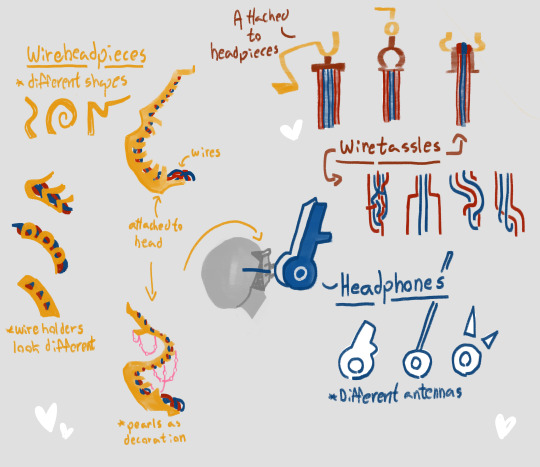 Wireheadpieces
* different shapes
wires
attached to
head
* wire holders
look different
* pearls as
decoration
Attached
to
headpieces
Wiretassles
Headphones
* Different antennas